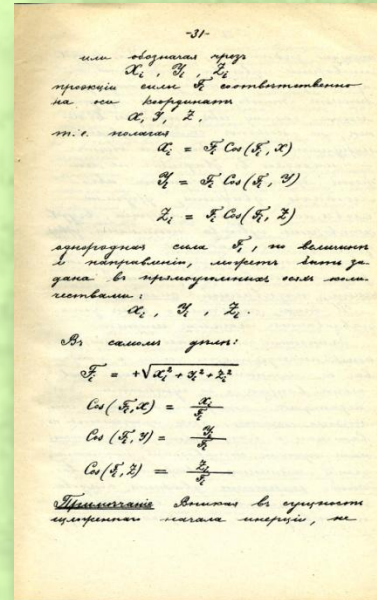 -31-
или обозначая чрезъ
Xi , Yi , Zi
проекціи силы Fi соотвѣтственно
на оси координатъ
X, Y, Z,
т.е. полагая
Xi = Fi Cos (Fi, X)
Yi = Fi Cos (Fi, Y)
Zi = Fi Cos (Fi, Z)
однородная сила Fi, по величинѣ
и направленію, можетъ быть за-
дана въ прямоугольныхъ осяхъ коли-
чествами:
Xi , Yi , Zi.
Въ самомъ дѣлѣ:
Fi = +√Xi² + Yi² + Zi²
Cos (Fi, X) = Xi/Fi
Cos (Fi, Y) = Yi/Fi
Cos (Fi, Z) = Zi/Fi
Примѣчаніе Вникая въ сущность
начала инерціи, не